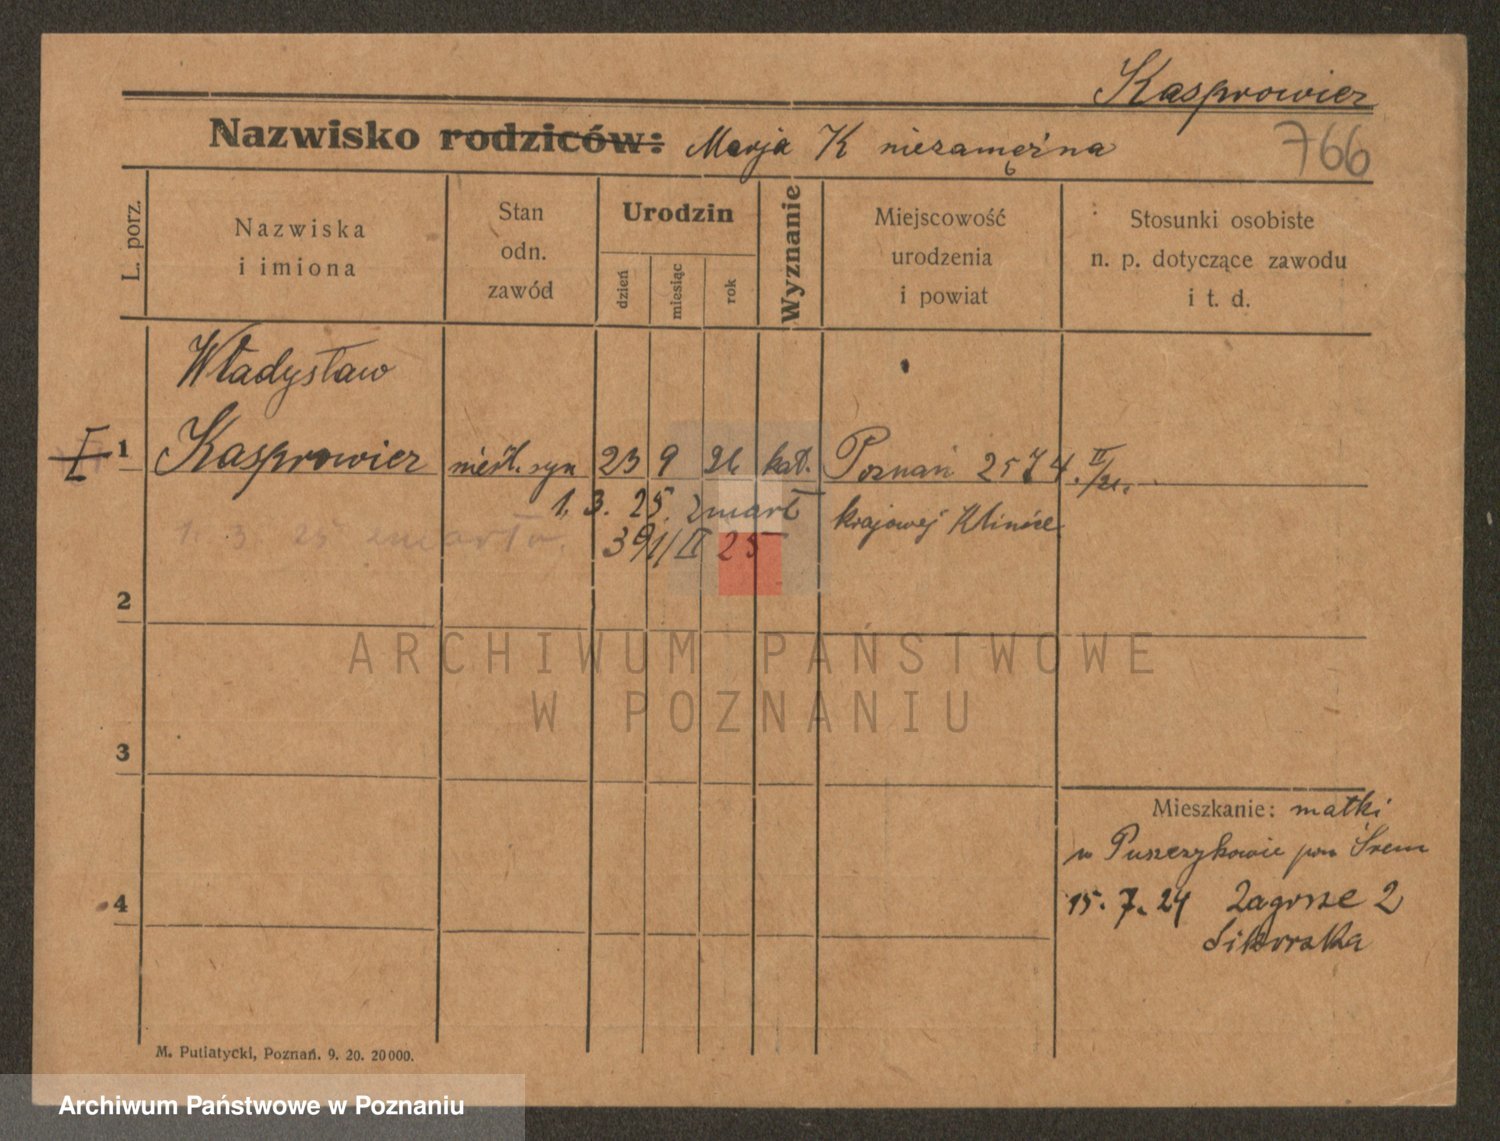 Kasprowicz
Nazwisko rodziców: Marja K niezamężna
766
L. porz.
Nazwiska
i imiona
Stan
odn.
zawód
Urodzin
dzień
miesiąc
rok
Wyznanie
Miejscowość
urodzenia
i powiat
Stosunki osobiste
n. p. dotyczące zawodu
i t. d.
Władysław
I 1 Kasprowicz nieśl. syn 23 9 kat. Poznań 2574 II/21.
1. 3. 25. zmarł krajowej Klinice
1. 3. 25 zmarł
391/II 25
2
3
Mieszkanie: matki
w Puszczykowie pow Śrem
4
15. 7. 24 Zagorze 2
Sikorska
M. Putiatycki, Poznań. 9. 20. 20000.
ARCHIWUM PAŃSTWOWE
W POZNANIU
Archiwum Państwowe w Poznaniu